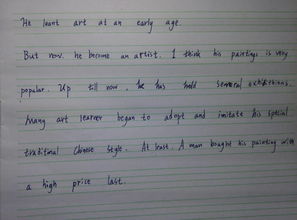 He leant art at an early age.
But now. he become an artist. I think his paintings is very
popular. Up till now, he has held several exhibitions.
Many art learner began to adopt and imitate his special
traditional Chinese style. At least. A man bought his painting with
a high price last.